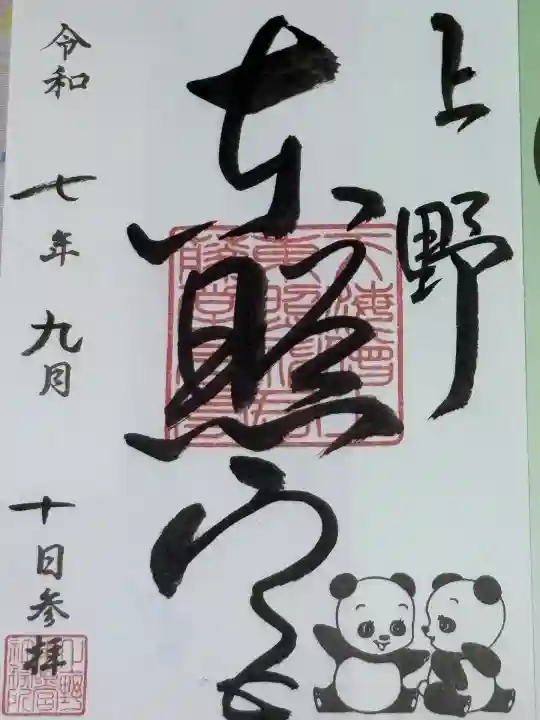 上野
東照宮
令和 七年 九月 十日参拝